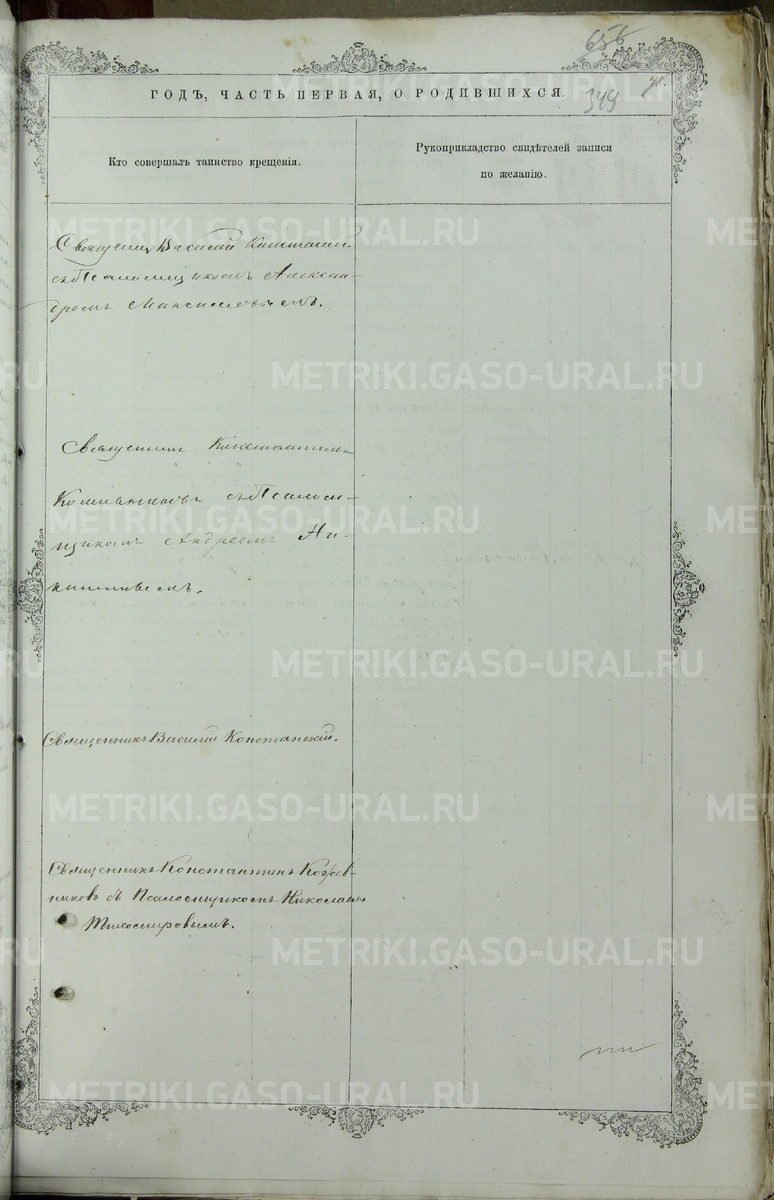 656
349
ГОДЪ, ЧАСТЬ ПЕРВАЯ, О РОДИВШИХСЯ.
Кто совершалъ таинство крещенія.
Рукоприкладство свидѣтелей записи
по желанію.
Священникъ Василій
съ Псаломщикомъ Алексан-
дромъ
Священникъ Константинъ
съ Псаломщ-
икомъ Андреемъ Ни-
китинымъ.
Священникъ Василій Констанскій.
Священникъ Константинъ Кожев-
никовъ съ Псаломщикомъ Николаемъ
Тихомировымъ.
METRIKI.GASO-URAL.RU